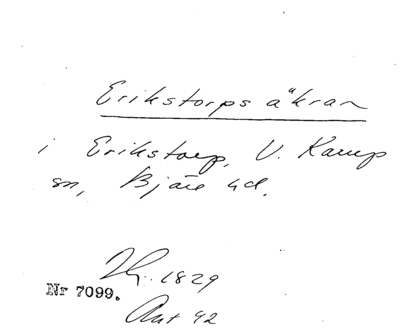 Erikstorps åkran
i Erikstorp, V. Karup
sn, Bjäre hd.
Hy. 1829
Nr 7099.
Akt 92